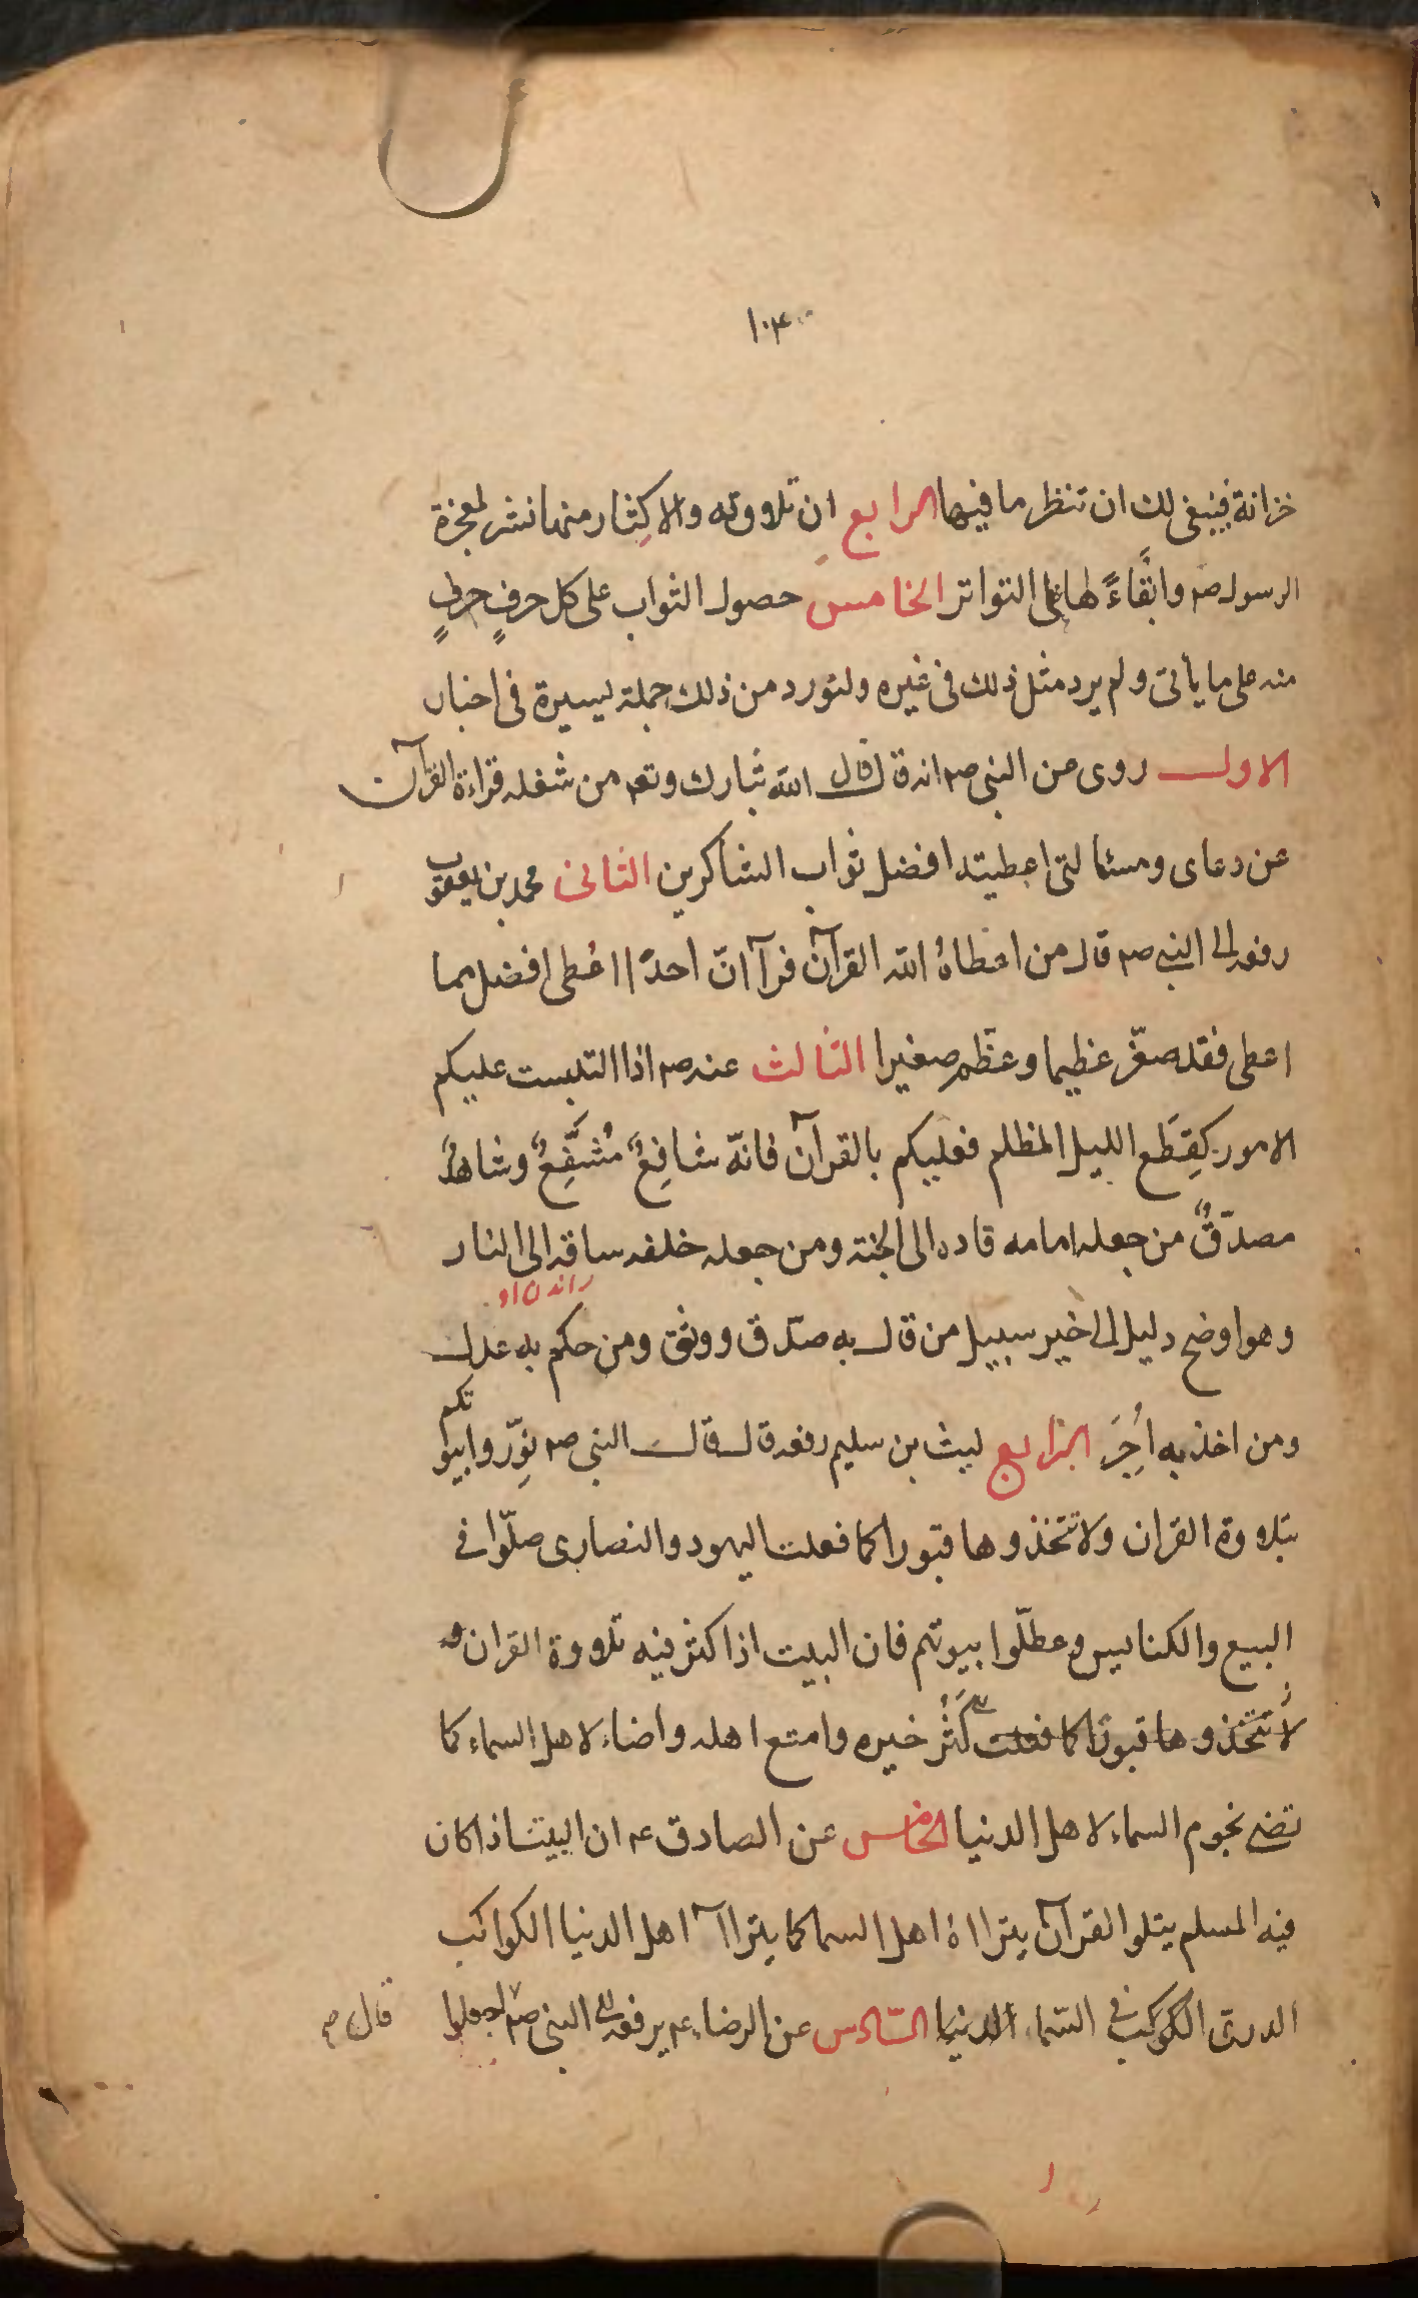 ١٠٣
خزانة فينبغى لك ان تنظر ما فيها الرابع ان تلاوته والاكِثار منها نشر لمعجزة
الرسول ص وابقَاءً لها على التواتر الخامس حصول الثواب على كل حرفٍ حرفٍ
منه على ما يأتى و لم يرد مثل ذلك فى غيره ولنورد من ذلك جملة يسيرة فى اخبار
الاول روى عن النبى ص انه قال قال الله تبارك وتعم من شغله قراءة القرآن
عن دعاى ومسئالتى اعطيته افضل ثواب الشاكرين الثانى محمد بن يعقوب
رفعه الى النبى ص قال من اعطاهُ الله القرآن فرآا انّ احدًا اعُطى افضل مما
اعطى فقد صغّر عظيما وعظّم صغيرا الثالث عنه ص اذا التبست عليكم
الامور كِقِطَع الليل المظلم فعليكم بالقرآن فانّه شافِعٌ مُشَفِّعٌ وشاهدٌ
مصدّقٌ من جعله امامه قاده الى الجنة ومن جعله خلفه ساقه الى النار
راندن او
وهو اوضح دليل الى خير سبيل من قال به صدّق ووثق ومن حكم به عدل
ومن اخذ به اُجِرَ الرابع ليث بن سليم رفعه قال قال النبى ص نوِّروا بيوتكم
بتلاوة القران ولا تتخذوها قبورا كما فعلت اليهود والنصارى صلّوا فى
البيع والكنايس وعطلّوا بيوتهم فان البيت اذا كثر فيه تلاووة القران و
لا تتخذوها قبورًا كما فعلت كَثُر خيره وامتع اهله واضاء لاهل السماء كما
تضى نجوم السماء لاهل الدنيا الخامس عن الصادق ع ان البيت اذا كان
فيه المسلم يتلو القرآن يتراا هُ اهل السما كما يتراا آ اهل الدنيا الكواكب
الدرى الكوكب فى السّماء الدنيا السّادس عن الرضاء ع يرفعه الى النبى ص اجعلوا
قال م